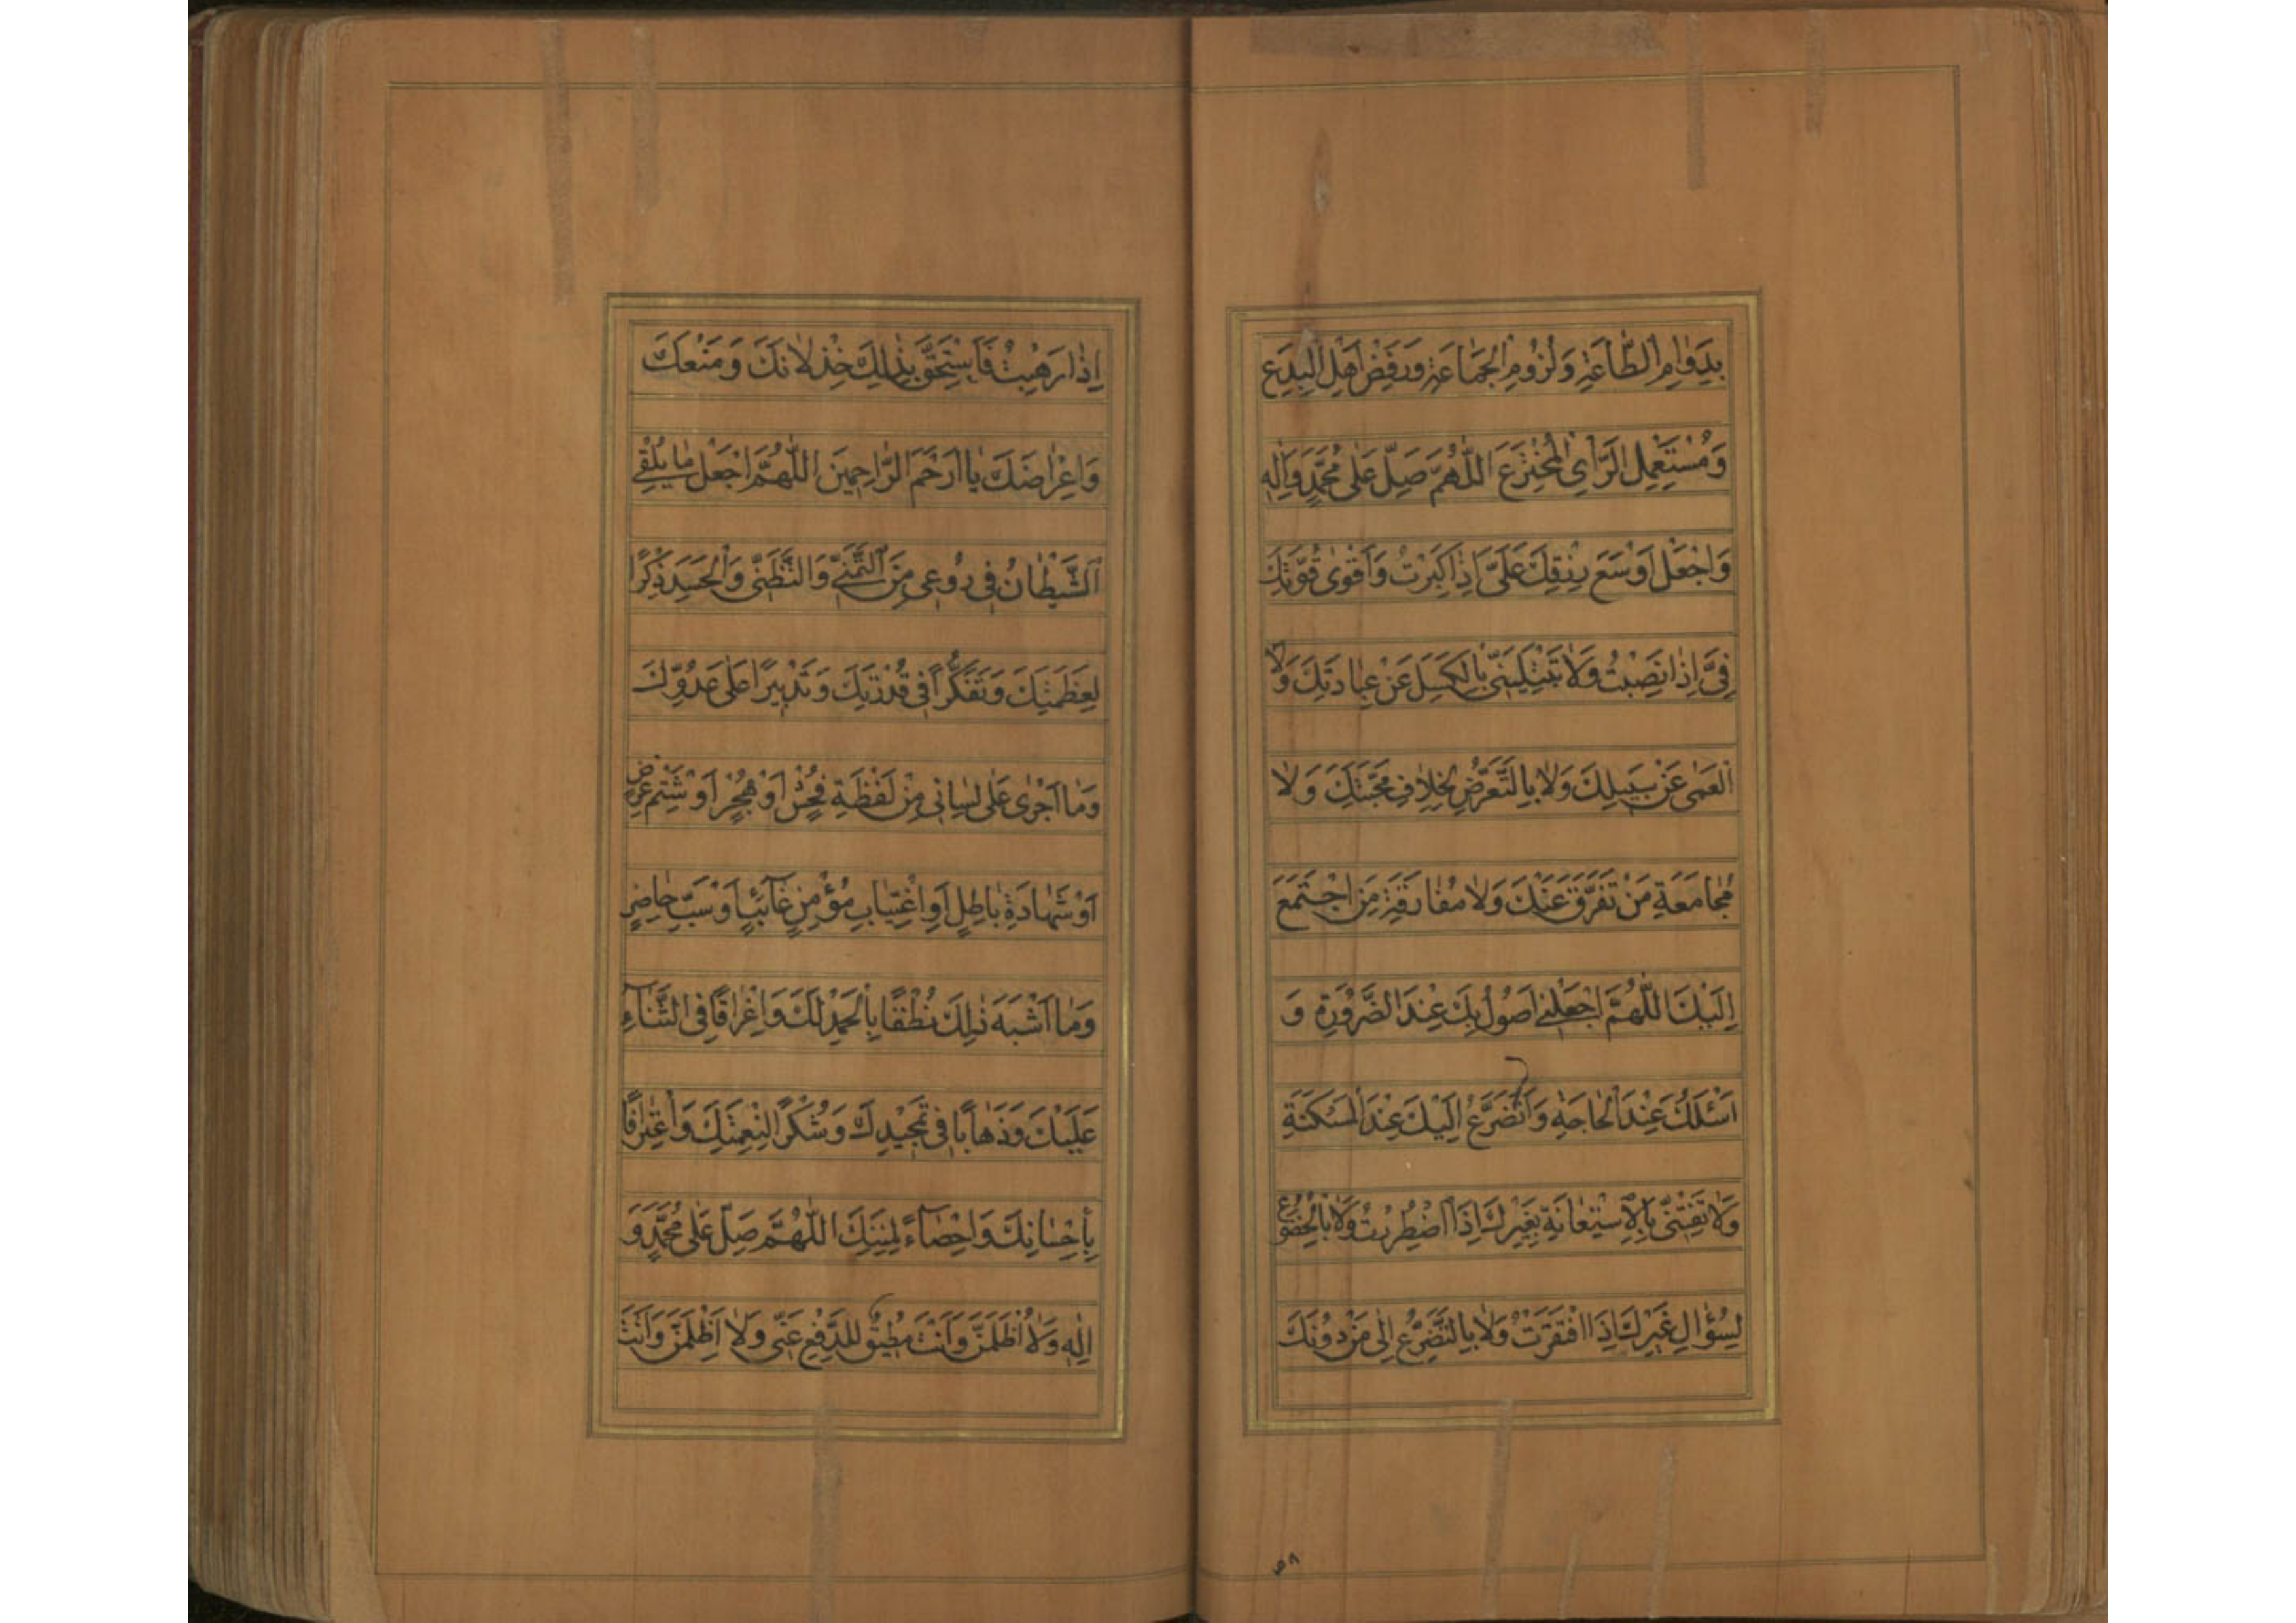 بِدَوٰامِ الطّٰاعَةِ وَلُزُومِ الْجَمٰاعَةِ وَرَفْضِ اَهْلِ الْبِدَعِ
وَمُسْتَعْمِلِ الرَّاْىِ الْمُخْتَرَعِ اَللّٰهُمَّ صَلِّ عَلٰى مُحَمَّدٍ وَاٰلِهِ
وَاجْعَلْ اَوْسَعَ رِزْقِكَ عَلَىَّ اِذٰا كَبِرْتُ وَاَقْوٰى قُوَّتِكَ
فِىَّ اِذٰا نَصِبْتُ وَلٰا تَبْتَلِيَنّى بِالْكَسَلِ عَنْ عِبٰادَتِكَ وَلَا
الْعَمٰى عَنْ سَبيلِكَ وَلٰا بِالتَّعَرُّضِ لِخِلٰافِ مَحَبَّتِكَ وَلٰا
مُجٰامَعَةِ مَنْ تَفَرَّقَ عَنْكَ وَلٰا مُفٰارَقَةِ مَنِ اجْتَمَعَ
اِلَيْكَ اَللّٰهُمَّ اجْعَلْنى اَصُولُ بِكَ عِنْدَ الضَّرُورَةِ وَ
اَسْئَلُكَ عِنْدَ الْحٰاجَةِ وَاَتَضَرَّعُ اِلَيْكَ عِنْدَ الْمَسْكَنَةِ
وَلٰا تَفْتِنّى بِالْاِسْتِعٰانَةِ بِغَيْرِكَ اِذَا اضْطُرِرْتُ وَلٰا بِالْخُضُوعِ
لِسُؤٰالِ غَيْرِكَ اِذَا افْتَقَرْتُ وَلٰا بِالتَّضَرُّعِ اِلٰى مَنْ دُونَكَ
٥٨
اِذٰا رَهِبْتُ فَاَسْتَحِقَّ بِذٰلِكَ خِذْلٰانَكَ وَمَنْعَكَ
وَاِعْرٰاضَكَ يٰا اَرْحَمَ الرّٰاحِمينَ اَللّٰهُمَّ اجْعَلْ مٰا يُلْقِى
الشَّيْطٰانُ فى رُوعى مِنَ التَّمَنّى وَالتَّظَنّى وَالْحَسَدِ ذِكْرًا
لِعَظَمَتِكَ وَتَفَكُّرًا فى قُدْرَتِكَ وَتَدْبيرًا عَلٰى عَدُوِّكَ
وَمٰا اَجْرٰى عَلٰى لِسٰانى مِنْ لَفْظَةِ فُحْشٍ اَوْ هُجْرٍ اَوْ شَتْمِ عِرْضٍ
اَوْ شَهٰادَةِ بٰاطِلٍ اَوِ اغْتِيٰابِ مُؤْمِنٍ غٰآئِبٍ اَوْ سَبِّ حٰاضِرٍ
وَمٰا اَشْبَهَ ذٰلِكَ نُطْقًا بِالْحَمْدِ لَكَ وَاِغْرٰاقًا فِى الثَّنٰآءِ
عَلَيْكَ وَذَهٰابًا فى تَمْجيدِكَ وَشُكْرًا لِنِعْمَتِكَ وَاعْتِرٰافًا
بِاِحْسٰانِكَ وَاِحْصٰآءً لِمِنَنِكَ اَللّٰهُمَّ صَلِّ عَلٰى مُحَمَّدٍ وَ
اٰلِهِ وَلٰا اُظْلَمَنَّ وَاَنْتَ مُطيقٌ لِلدَّفْعِ عَنّى وَلٰا اَظْلِمَنَّ وَاَنْتَ